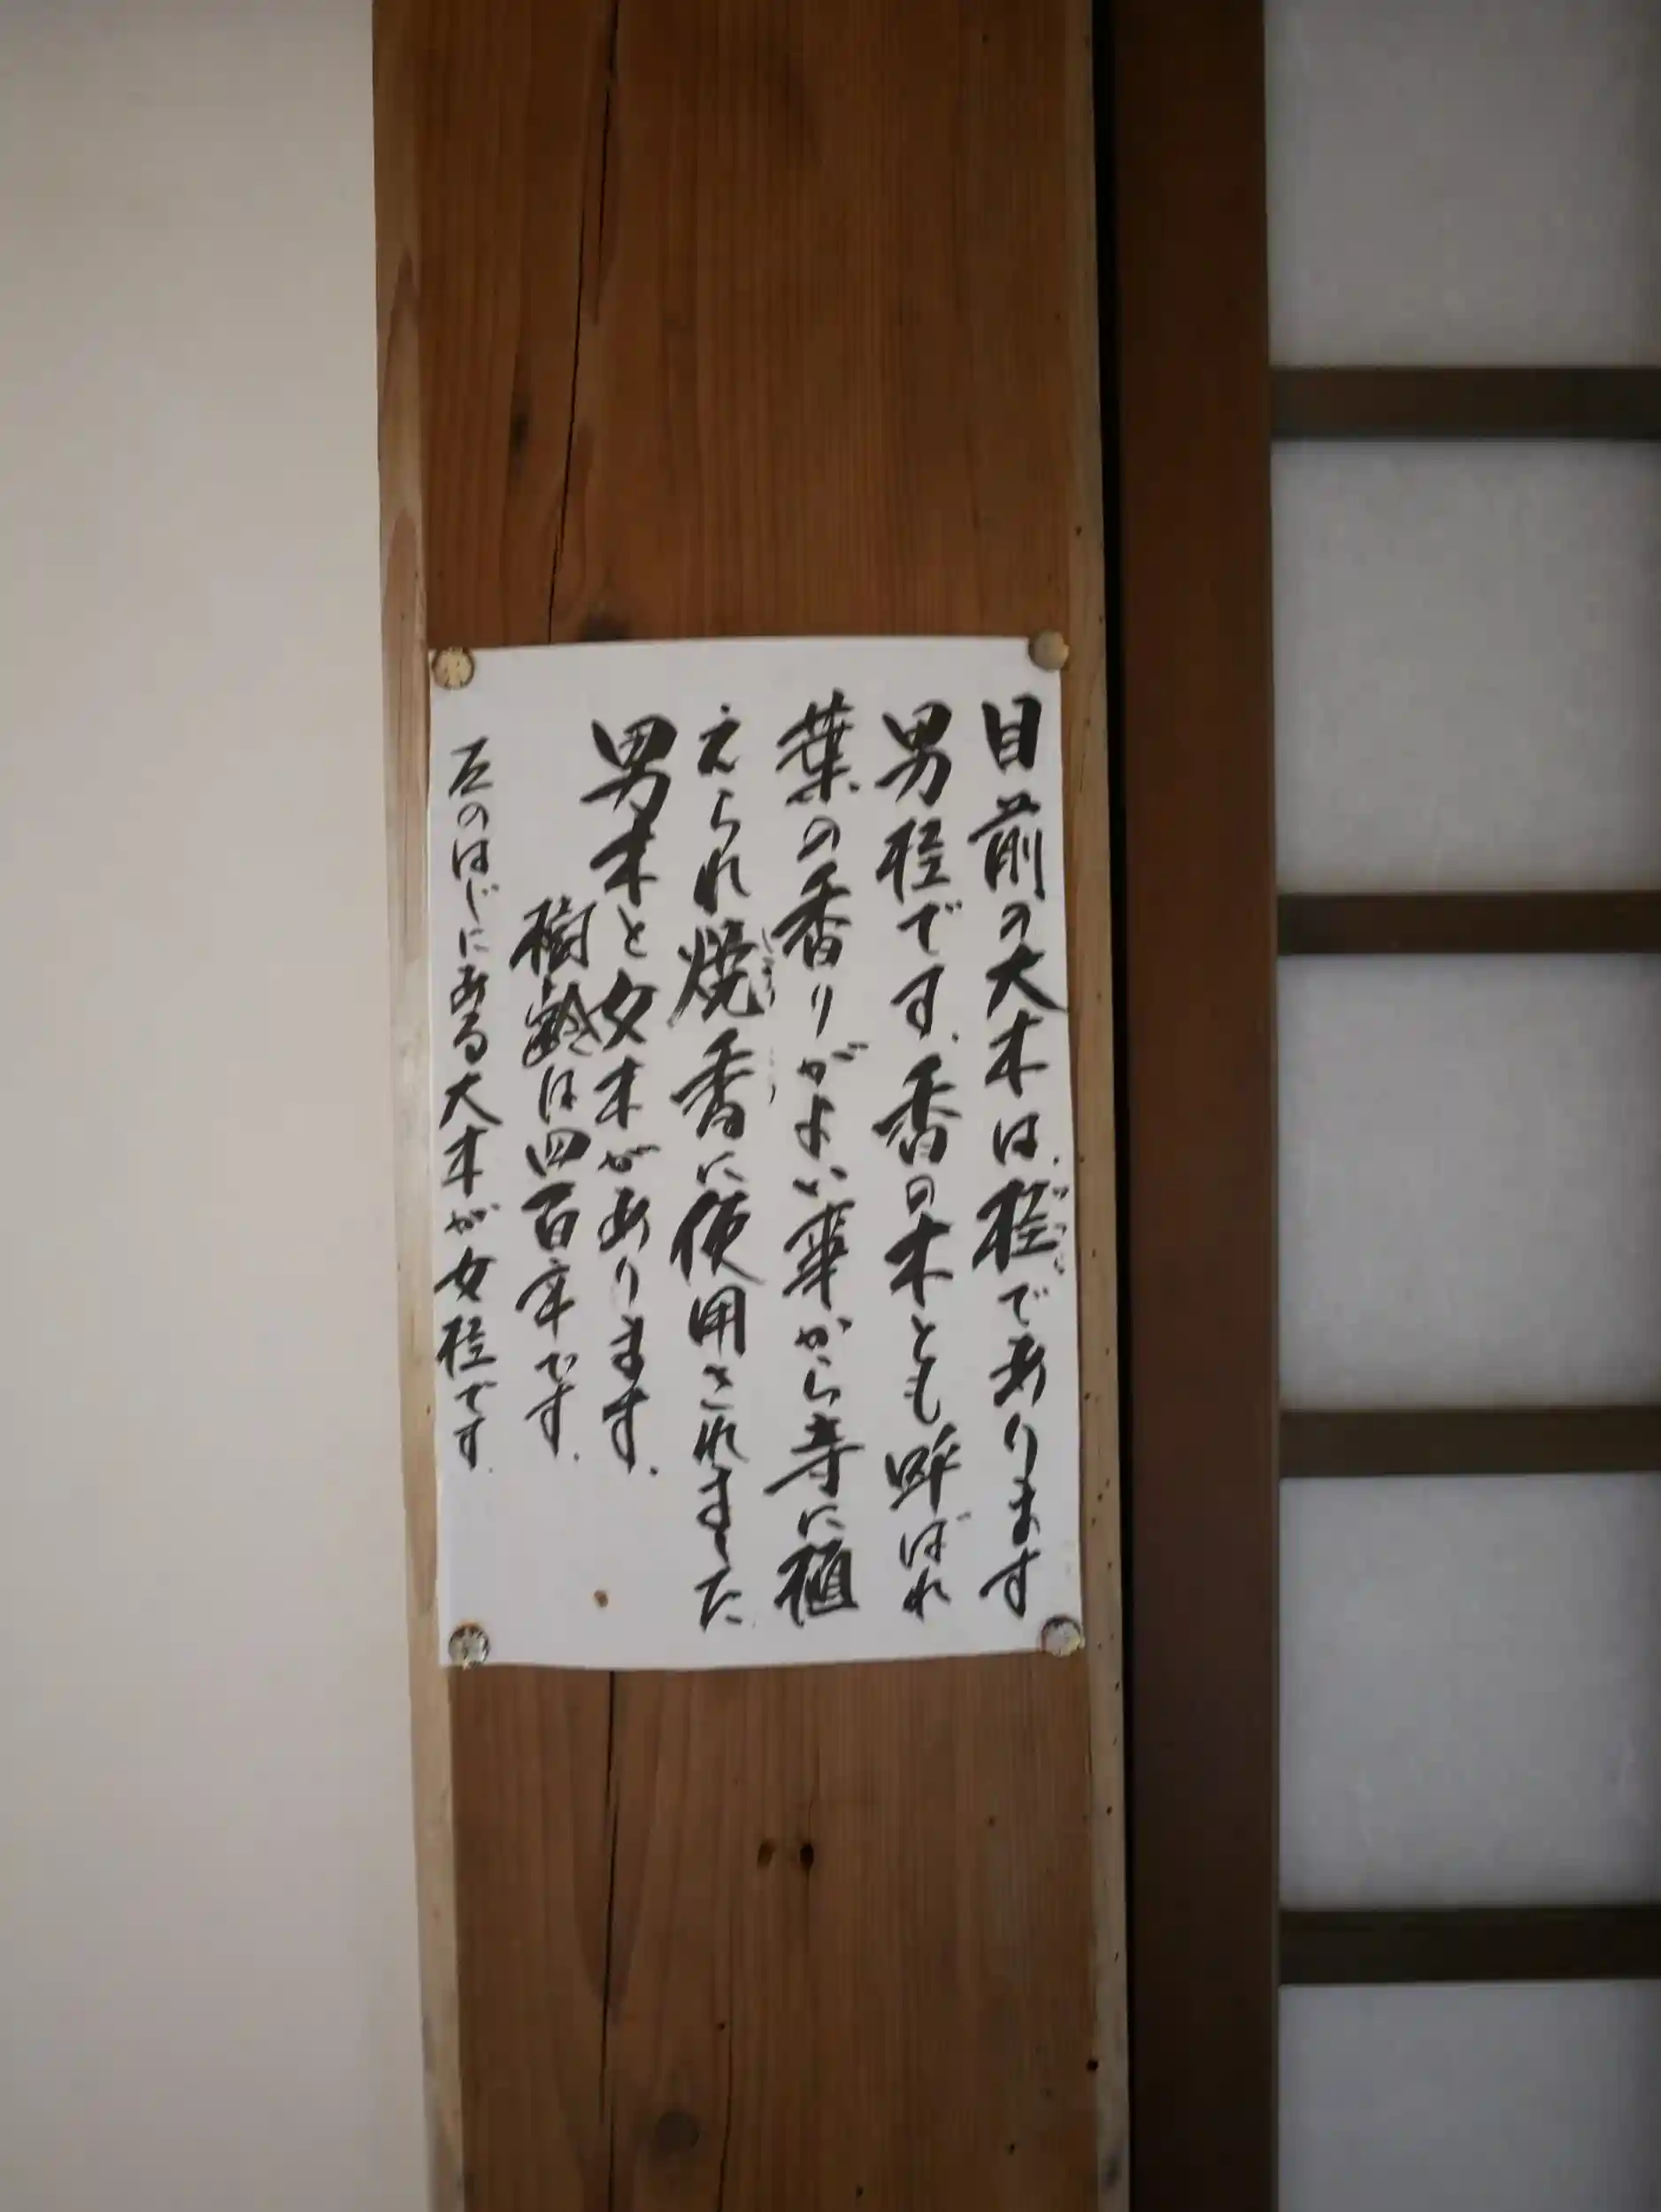 目前の大木は、桂であります
男桂です、香の木とも呼ばれ
葉の香りがよい事から寺に植
えられ焼香に使用されました
男木と女木があります。
樹齢は四百年です。
左のはじにある大木が女桂です。